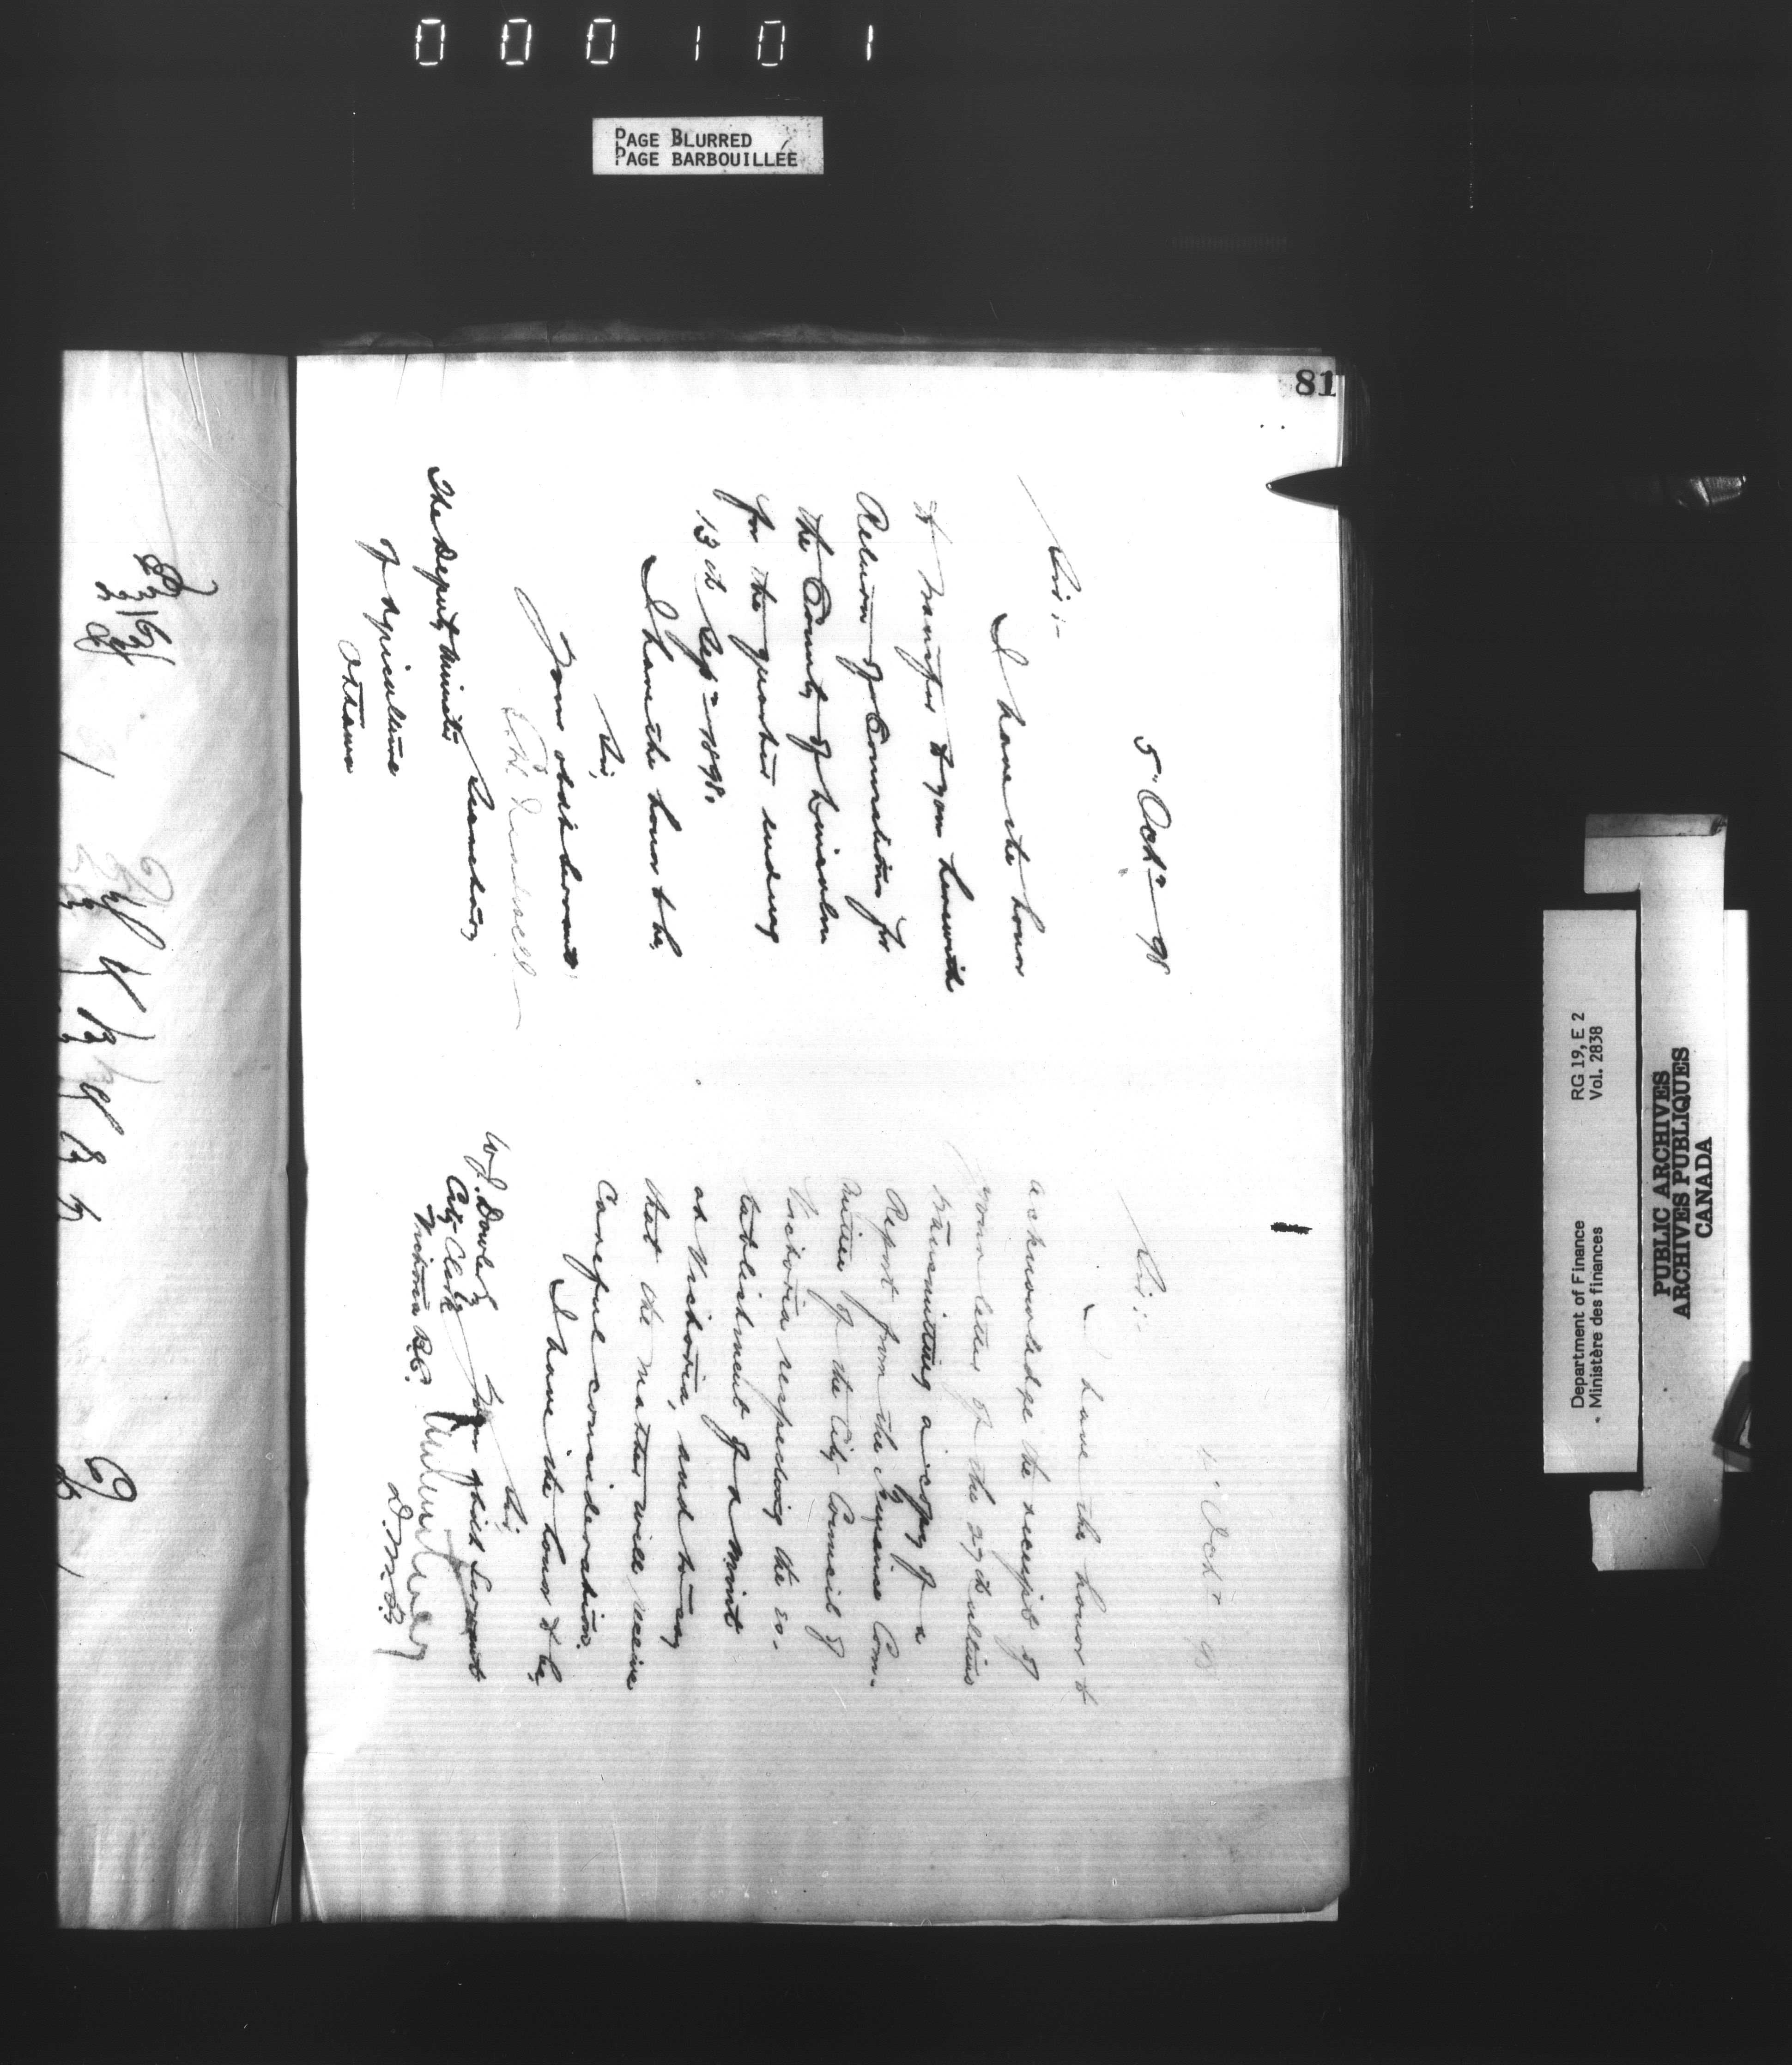 000101
PAGE BLURRED
PAGE BARBOUILLÉE
81
5" Octr 98
Sir:-
I have the honor
to transfer to your herewith
Return of Convictions for
the County of Lincoln
for the quarter ending
13th Sepr 1898.
I have the honor to be,
Sir,
Your obdt Servant
Secretary
The Deputy Minister
of Agriculture
Ottawa
Octr 98
Sir:-
I have the honor to
acknowledge the receipt of
your letter of the 27th ultimo
transmitting a copy of a
Report from the Finance Com-
mittee of the City Council of
Victoria respecting the es-
tablishment of a Mint
at Victoria, and to say
that the matter will receive
careful consideration.
I have the honor to be,
Sir,
Your obdt Servant
D.M.F.
W.J. Dowler Esq
City Clerk
Victoria B.C.
Department of Finance RG 19, E 2
Ministère des finances Vol. 2838
PUBLIC ARCHIVES
ARCHIVES PUBLIQUES
CANADA